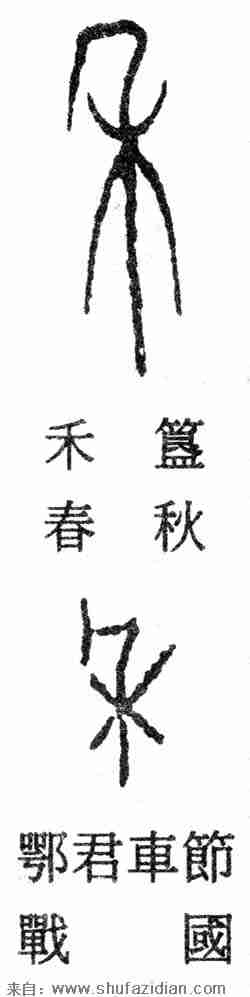 禾
禾簋
春秋
禾
鄂君車節
戰國
来自：www.shufazidian.com